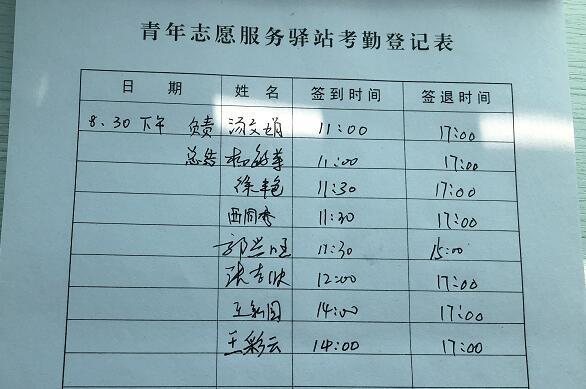 青年志愿服务驿站考勤登记表
日 期 姓 名 签到时间 签退时间
8.30 下午 负责 汤文娟 11:00 17:00
总结 11:00 17:00
徐丰艳 11:30 17:00
11:30 17:00
郭兰旺 11:30 15:00
12:00 17:00
14:00 17:00
王彩云 14:00 17:00